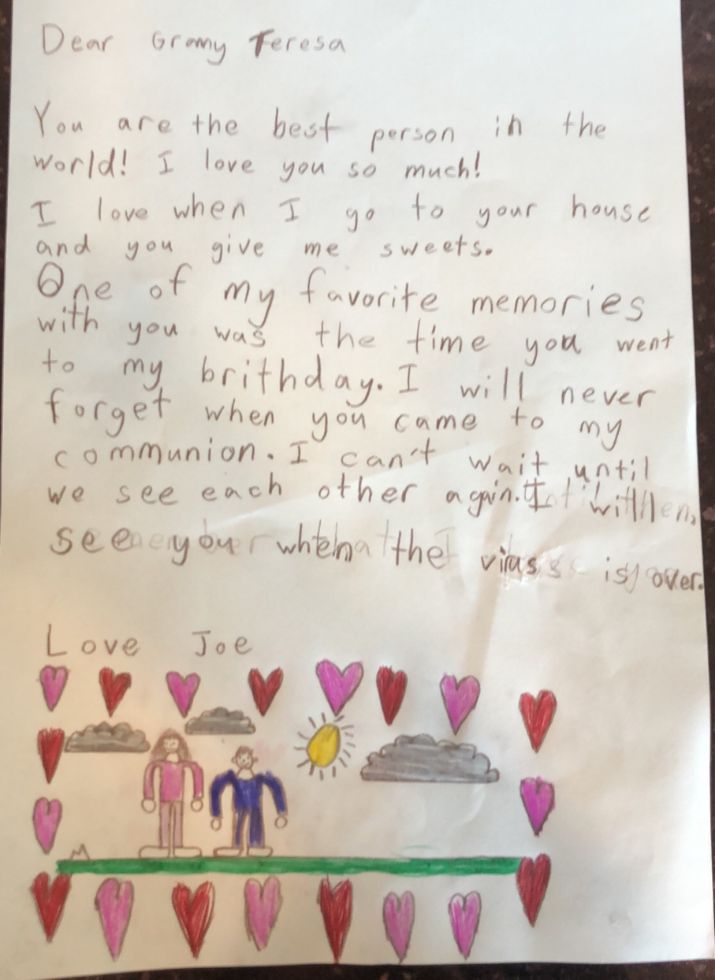 Dear Gramy Teresa
You are the best person in the
world! I love you so much!
I love when I go to your house
and you give me sweets.
One of my favorite memories
with you was the time you went
to my brithday. I will never
forget when you came to my
communion. I can't wait until
we see each other again. I will
see you when the virus is over.
Love Joe